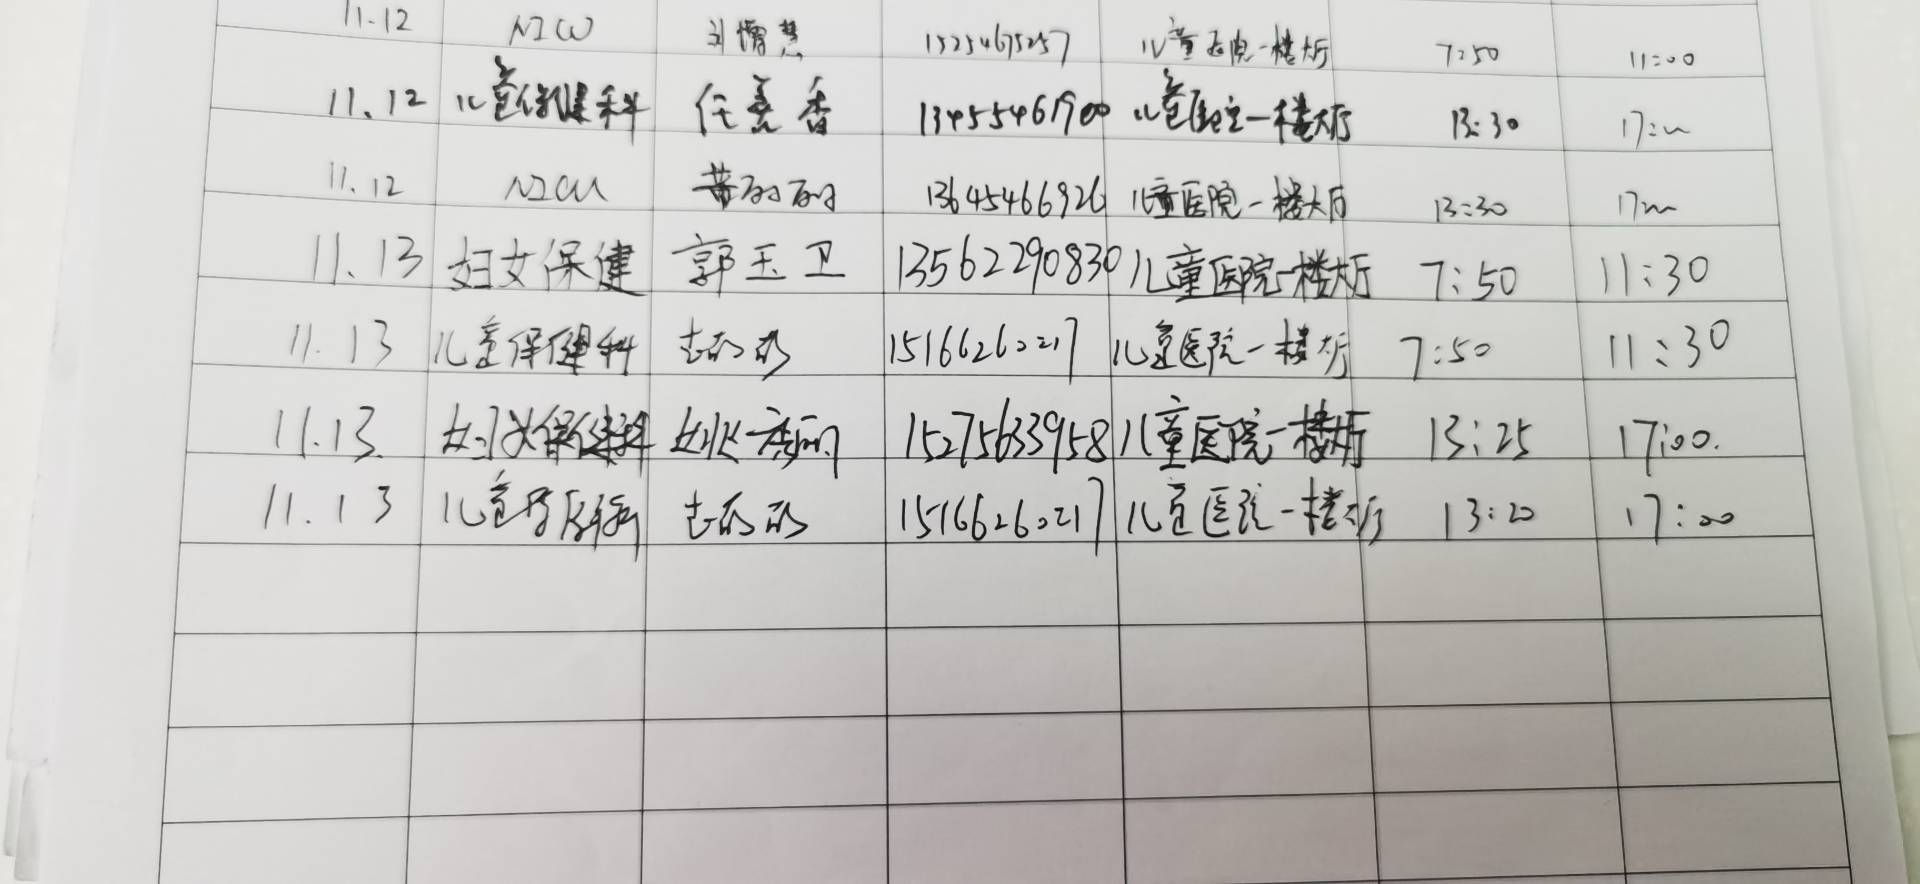 11.12 NICU 刘增慧 15254675257 儿童医院一楼大厅 7:50 11:00
11.12 儿童保健科 任素香 13455461900 儿童医院一楼大厅 13:30 17:00
11.12 NICU 黄丽丽 13645466926 儿童医院一楼大厅 13:30 17:00
11.13 妇女保健 郭玉卫 13562290830 儿童医院一楼大厅 7:50 11:30
11.13 儿童保健科 15166260217 儿童医院一楼大厅 7:50 11:30
11.13 妇女保健科 15275633958 儿童医院一楼大厅 13:25 17:00.
11.13 儿童保健科 15166260217 儿童医院一楼大厅 13:20 17:00